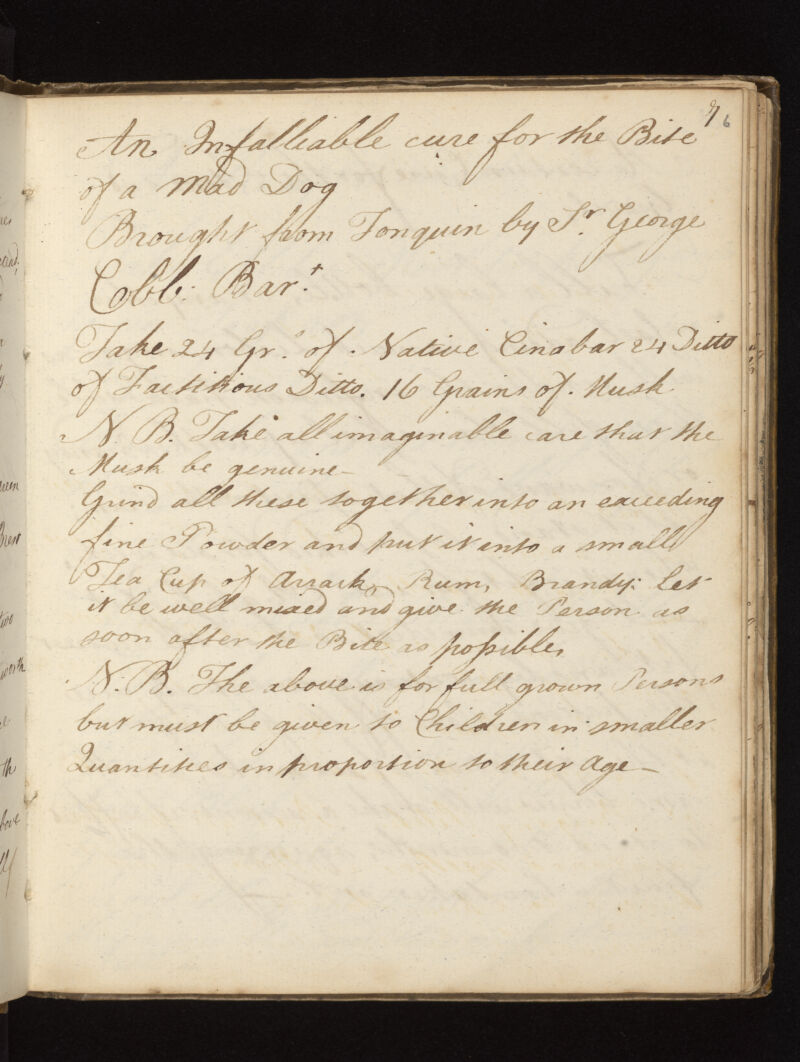 7 6
An Infalliable cure for the Bite
of a Mad Dog
Brought from Tonquin by Sr. George
Cobb: Bart.
Take 24 Grs. of Native Cinabar 24 Ditto
of Factitious Ditto. 16 Grains of Musk
N. B. Take all imaginable care that the
Musk be genuine –
Grind all these together into an exceeding
fine Powder and put it into a small
Tea Cup of Arrack, Rum, Brandy: let
it be well mixed and give the Person as
soon after the Bite as possible,
N. B. The above is for full grown Persons
but must be given to Children in smaller
Quantities in proportion to their Age –